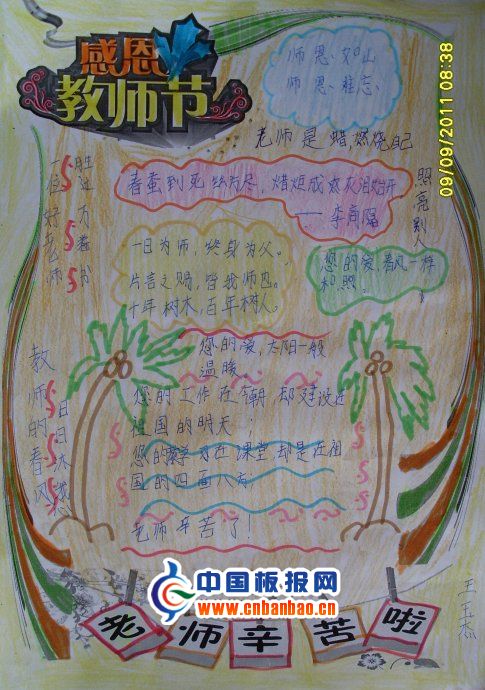 感恩
教师节
师恩如山
师恩难忘
09/09/2011 08:38
老师是蜡,燃烧自己
照亮别人
一位好老师
胜过万卷书
春蚕到死丝方尽,蜡炬成灰泪始干
——李商隐
一日为师,终身为父。
片言之赐,皆我师也。
十年树木,百年树人。
您的爱,春风一样
和煦.
您的爱,太阳一般
温暖。
您的工作在今朝 却建设在
祖国的明天;
您的教学在课堂 却是在祖
国的四面八方
老师辛苦了!
教师的春风
日日沐
中国板报网
www.cnbanbao.cn
老师辛苦啦